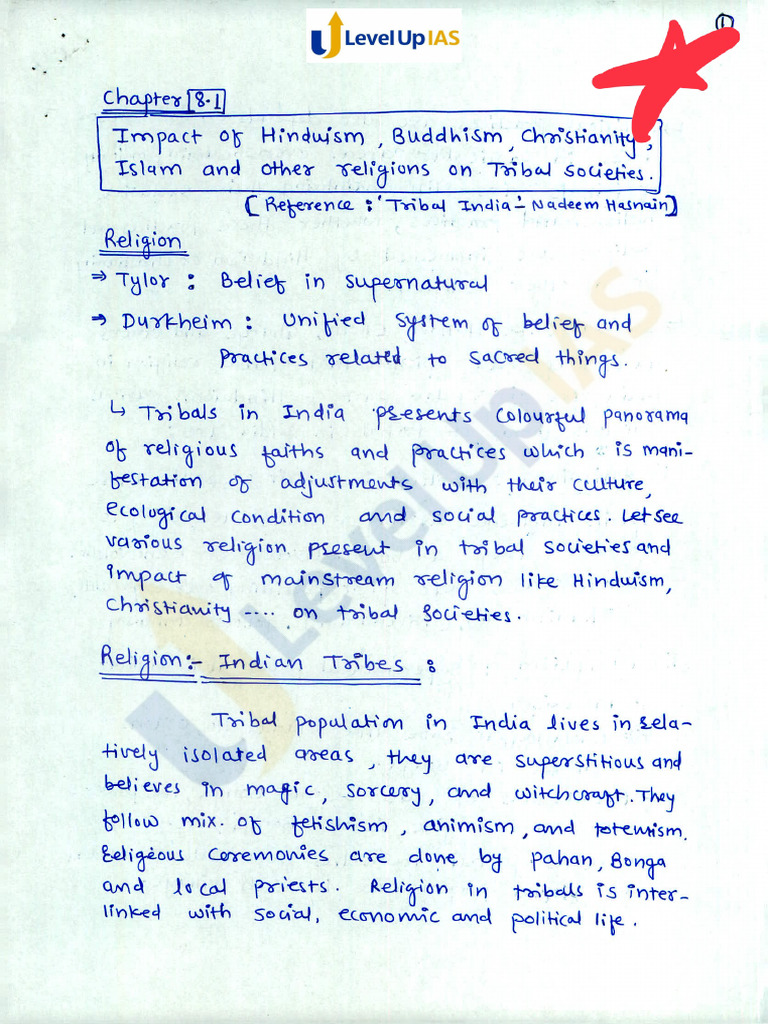 Level Up IAS
1
Chapter 8.1
Impact of Hinduism, Buddhism, Christianity,
Islam and other religions on Tribal Societies.
[Reference : 'Tribal India' - Nadeem Hasnain]
Religion
⇒ Tylor : Belief in supernatural
⇒ Durkheim : Unified system of belief and
practices related to sacred things.
↳ Tribals in India presents colourful panorama
of religious faiths and practices which is mani-
festation of adjustments with their culture,
ecological condition and social practices. Let see
various religion present in tribal societies and
impact of mainstream religion like Hinduism,
Christianity .... on tribal societies.
Religion:- Indian Tribes :
Tribal population in India lives in rela-
tively isolated areas, they are superstitious and
believes in magic, sorcery, and witchcraft. They
follow mix. of fetishism, animism, and totemism.
Religeous ceremonies are done by Pahan, Bonga
and local priests. Religion in tribals is inter-
linked with social, economic and political life.
Level Up IAS